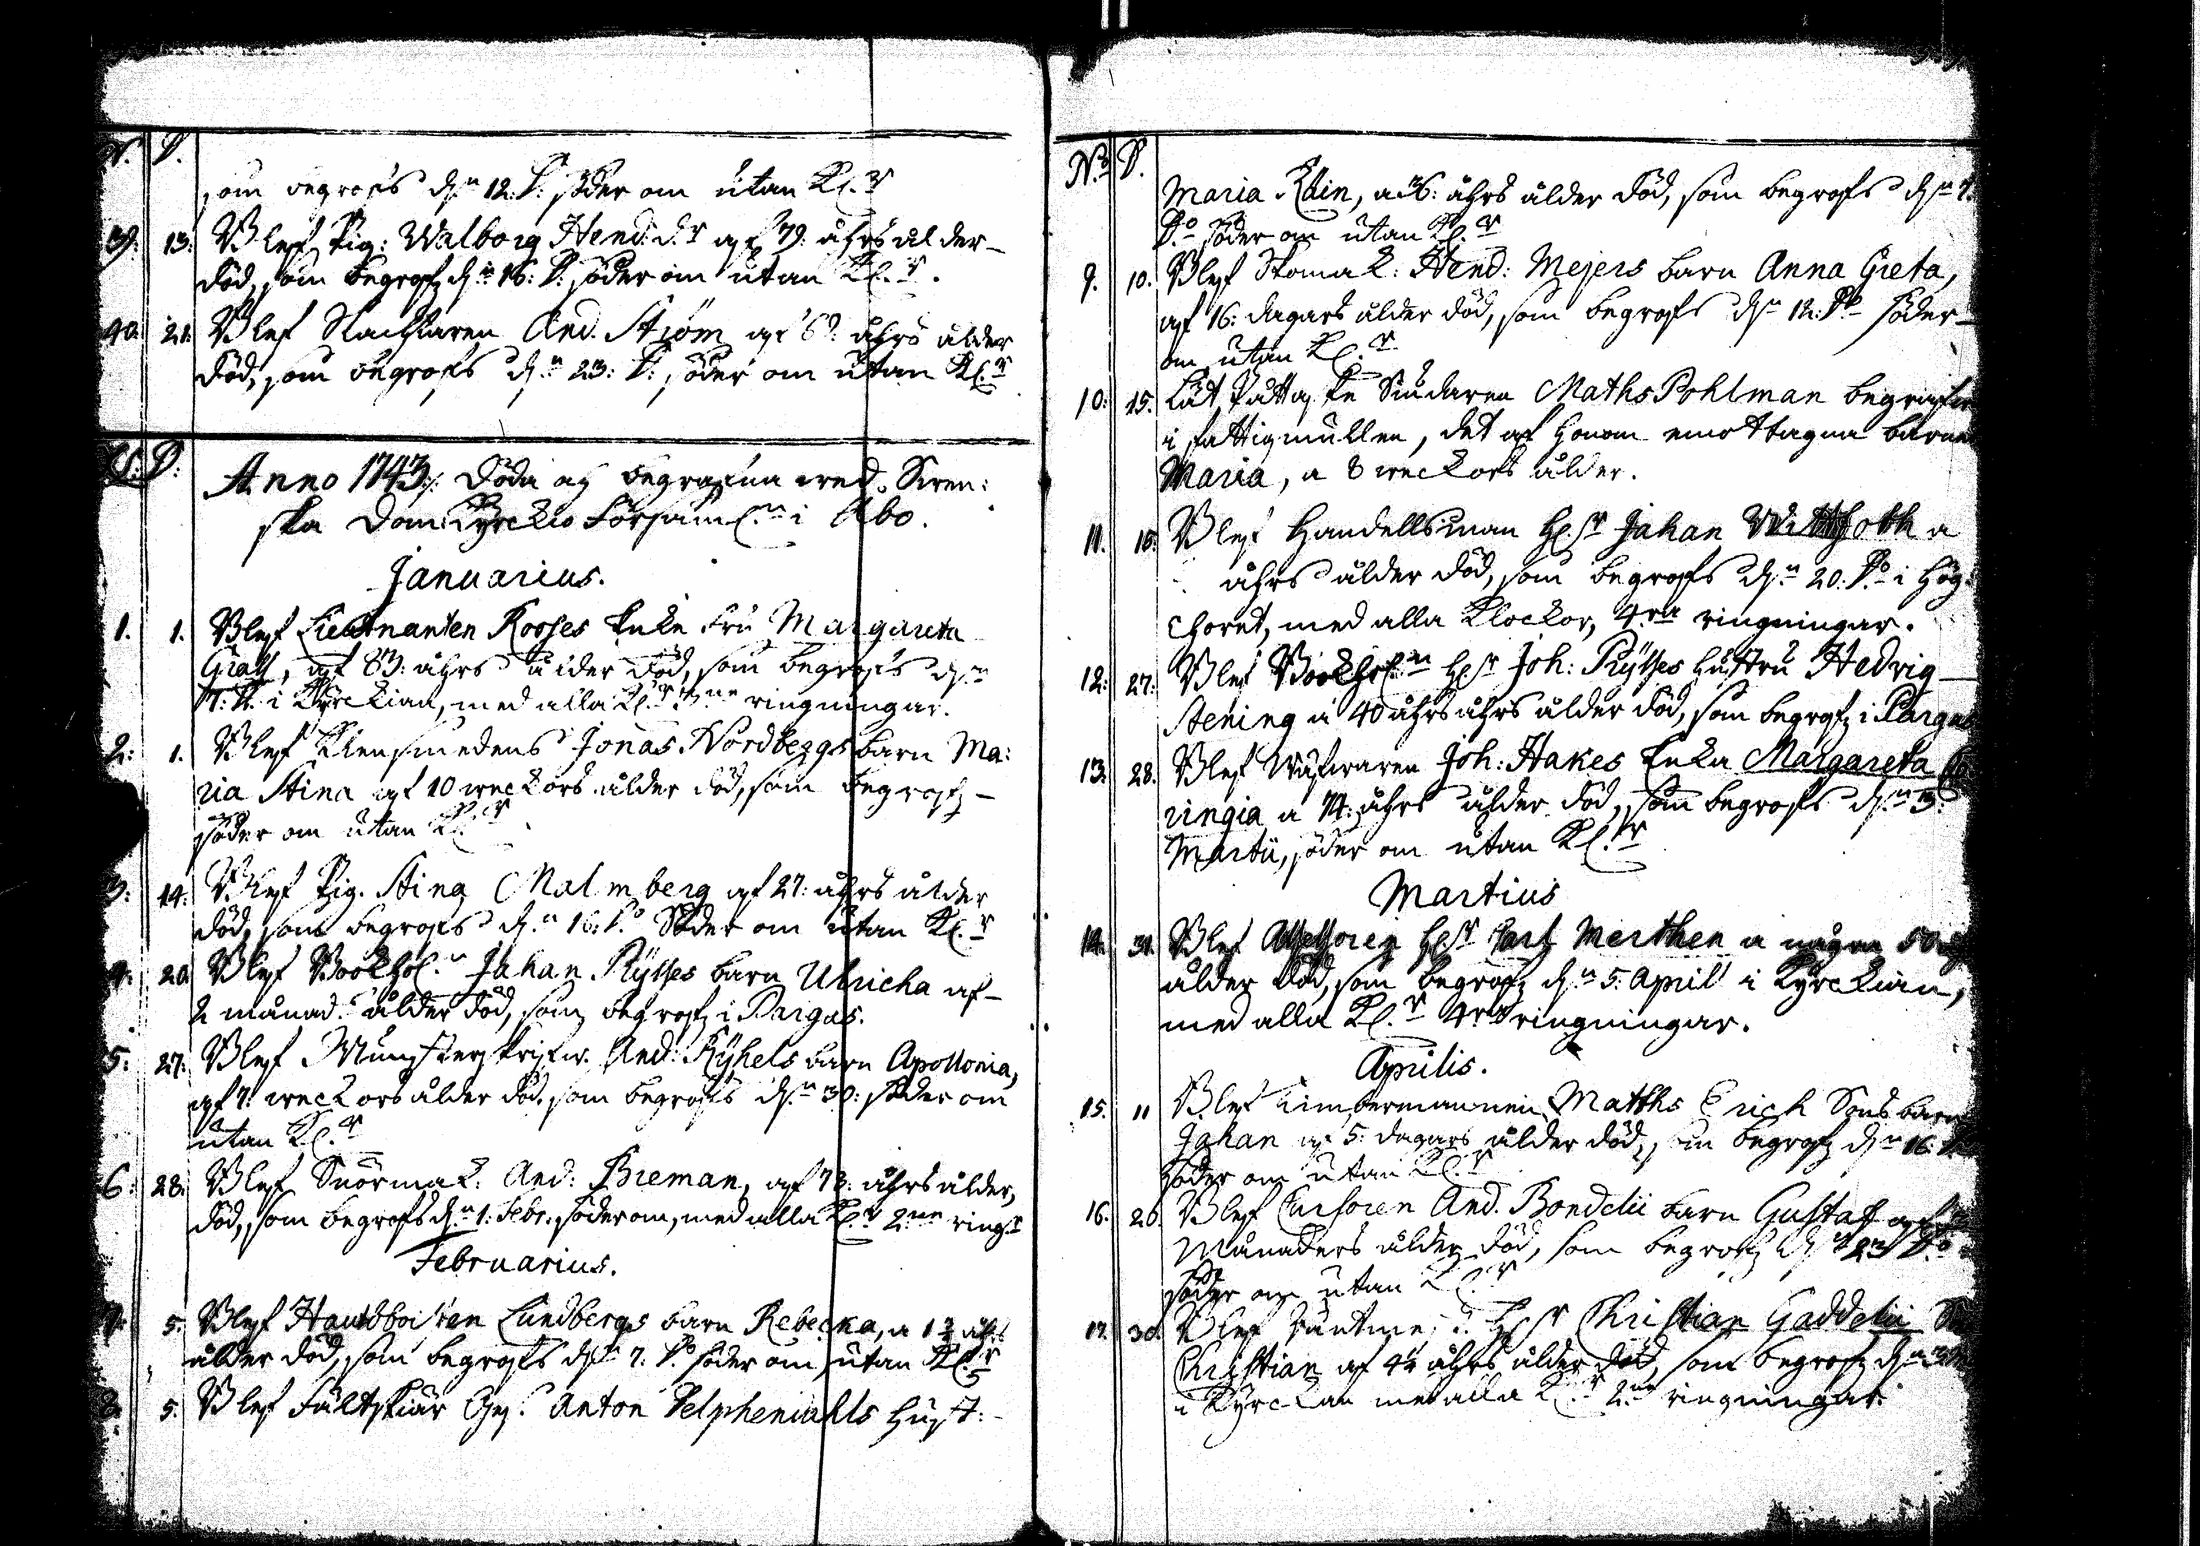 N. D.
som begrofs d.n 12. D: söder om utan Kl.r
39: 13: Blef Pig: Walborg Hend: d.r af 79: åhrs ålder
död, som begrofz d.n 16: D: söder om utan Kl.r.
40: 21: Blef And. Ström af åhrs ålder
död, som begrofs d.n 23: D: söder om utan Kl.r
N: D: Anno 1743: Döda och begrafna wed Swen:
ska Dom: Kyrckio Församl.n i Åbo.
Januarius.
1. 1. Blef Lieutnanten Rooses Enka Fru Margareta
Graa, af 83: åhrs ålder död, som begrofs d.n
D. i Kyrckian, med alla Kl.r ringningar.
2: 1. Blef Klensmedens Jonas Nordbergs barn Ma:
ria Stina af 10 weckors ålder död, som begrofz
söder om utan Kl.r
3: 14: Blef Pig. Stina Malmberg af 27: åhrs ålder
död, som begrofs d.n 16: D.o Söder om utan Kl.r
4. 20 Blef Bookhol.n Johan Pÿttses barn Ulricha af
2 månad.s ålder död, som begrofz i Pargas.
5: 27. Blef Munsterskrifw. And: Rÿhels barn Apollonia,
af 7: weckors ålder död, som begrofs d.n 30: söder om
utan Kl.r
6: 28. Blef Snörmak: And: Breman, af 73: åhrs ålder,
död, som begrofs d.n 1: Febr. söder om, med alla Kl.r 2.ne ring.r
Februarius.
7. 5. Blef Hautboisten Lundbergs barn Rebecka, a 1½ åhrs
ålder död, som begrofs d.n 7: D.o söder om utan Kl.r
8. 5. Blef Fältskiär Ges. Anton Delpheniahls Hust:
N.o D.
Maria Rein, a 36: åhrs ålder död, som begrofs d.n 7.
D.o söder om utan Kl.r
9. 10. Blef Skomak: Hend: Mejers barn Anna Greta,
af 16: dagars ålder död, som begrofs d.n 12: D.o söder
om utan Kl.r
10: 15. Lät Maths Pohlman begrafwa
i fattigmullen, det af honom emottagna barnet
Maria, a 8 weckors ålder.
11. 16: Blef Handelsman H.r Johan Wittfooth a
åhrs ålder död, som begrofs d.n 20: D.o i Hög
choret, med alla Klockor, 4.ra ringningar.
12: 27: Blef Bookhol.n H.r Joh: Pÿttses hustru Hedvig
Stening a 40 åhrs åhrs ålder död, som begrofz i Pargas
13. 28. Blef Wäfwaren Joh: Hakes Enka Margareta
ringia a 74: åhrs ålder död, som begrofs d.n 3:
Martii, söder om utan Kl.r
Martius
14. 31. Blef Assessoren H.r Carl Merthen a några 50
ålder död, som begrofz d.n 5: April i Kyrckian,
med alla Kl.r 4.ra ringningar.
Aprilis.
15. 11 Blef Timbermannen Matths Erich Sons barn
Johan af 5: dagars ålder död, som begrofz d.n 16.
söder om utan Kl.r
16. 20. Blef Cursoren And. Bondelii barn Gustaf af
Månaders ålder död, som begrofz d.n 23 D.o
söder om utan Kl.r
17. 30. Blef H.r Christian Gaddelii
Christian af 4½ åhrs ålder död, som begrofz d.n
i Kyrckan med alla Kl.r 2.ne ringningar.